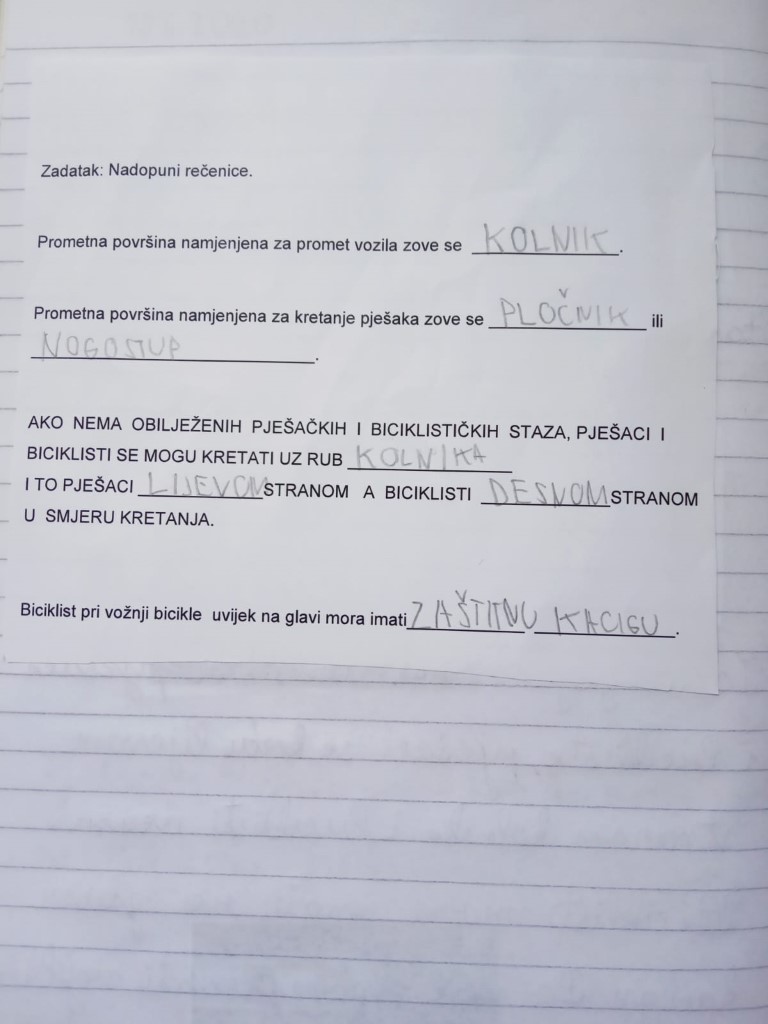 Zadatak: Nadopuni rečenice.
Prometna površina namjenjena za promet vozila zove se KOLNIK.
Prometna površina namjenjena za kretanje pješaka zove se PLOČNIK ili
NOGOSTUP.
AKO NEMA OBILJEŽENIH PJEŠAČKIH I BICIKLISTIČKIH STAZA, PJEŠACI I
BICIKLISTI SE MOGU KRETATI UZ RUB KOLNIKA
I TO PJEŠACI LIJEVOM STRANOM A BICIKLISTI DESNOM STRANOM
U SMJERU KRETANJA.
Biciklist pri vožnji bicikle uvijek na glavi mora imati ZAŠTITNU KACIGU.